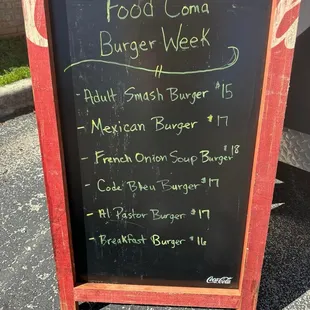 Food Coma
Burger Week
- Adult Smash Burger $15
- Mexican Burger $17
- French Onion Soup Burger $18
- Code Bleu Burger $17
- Al Pastor Burger $17
- Breakfast Burger $16
Coca-Cola